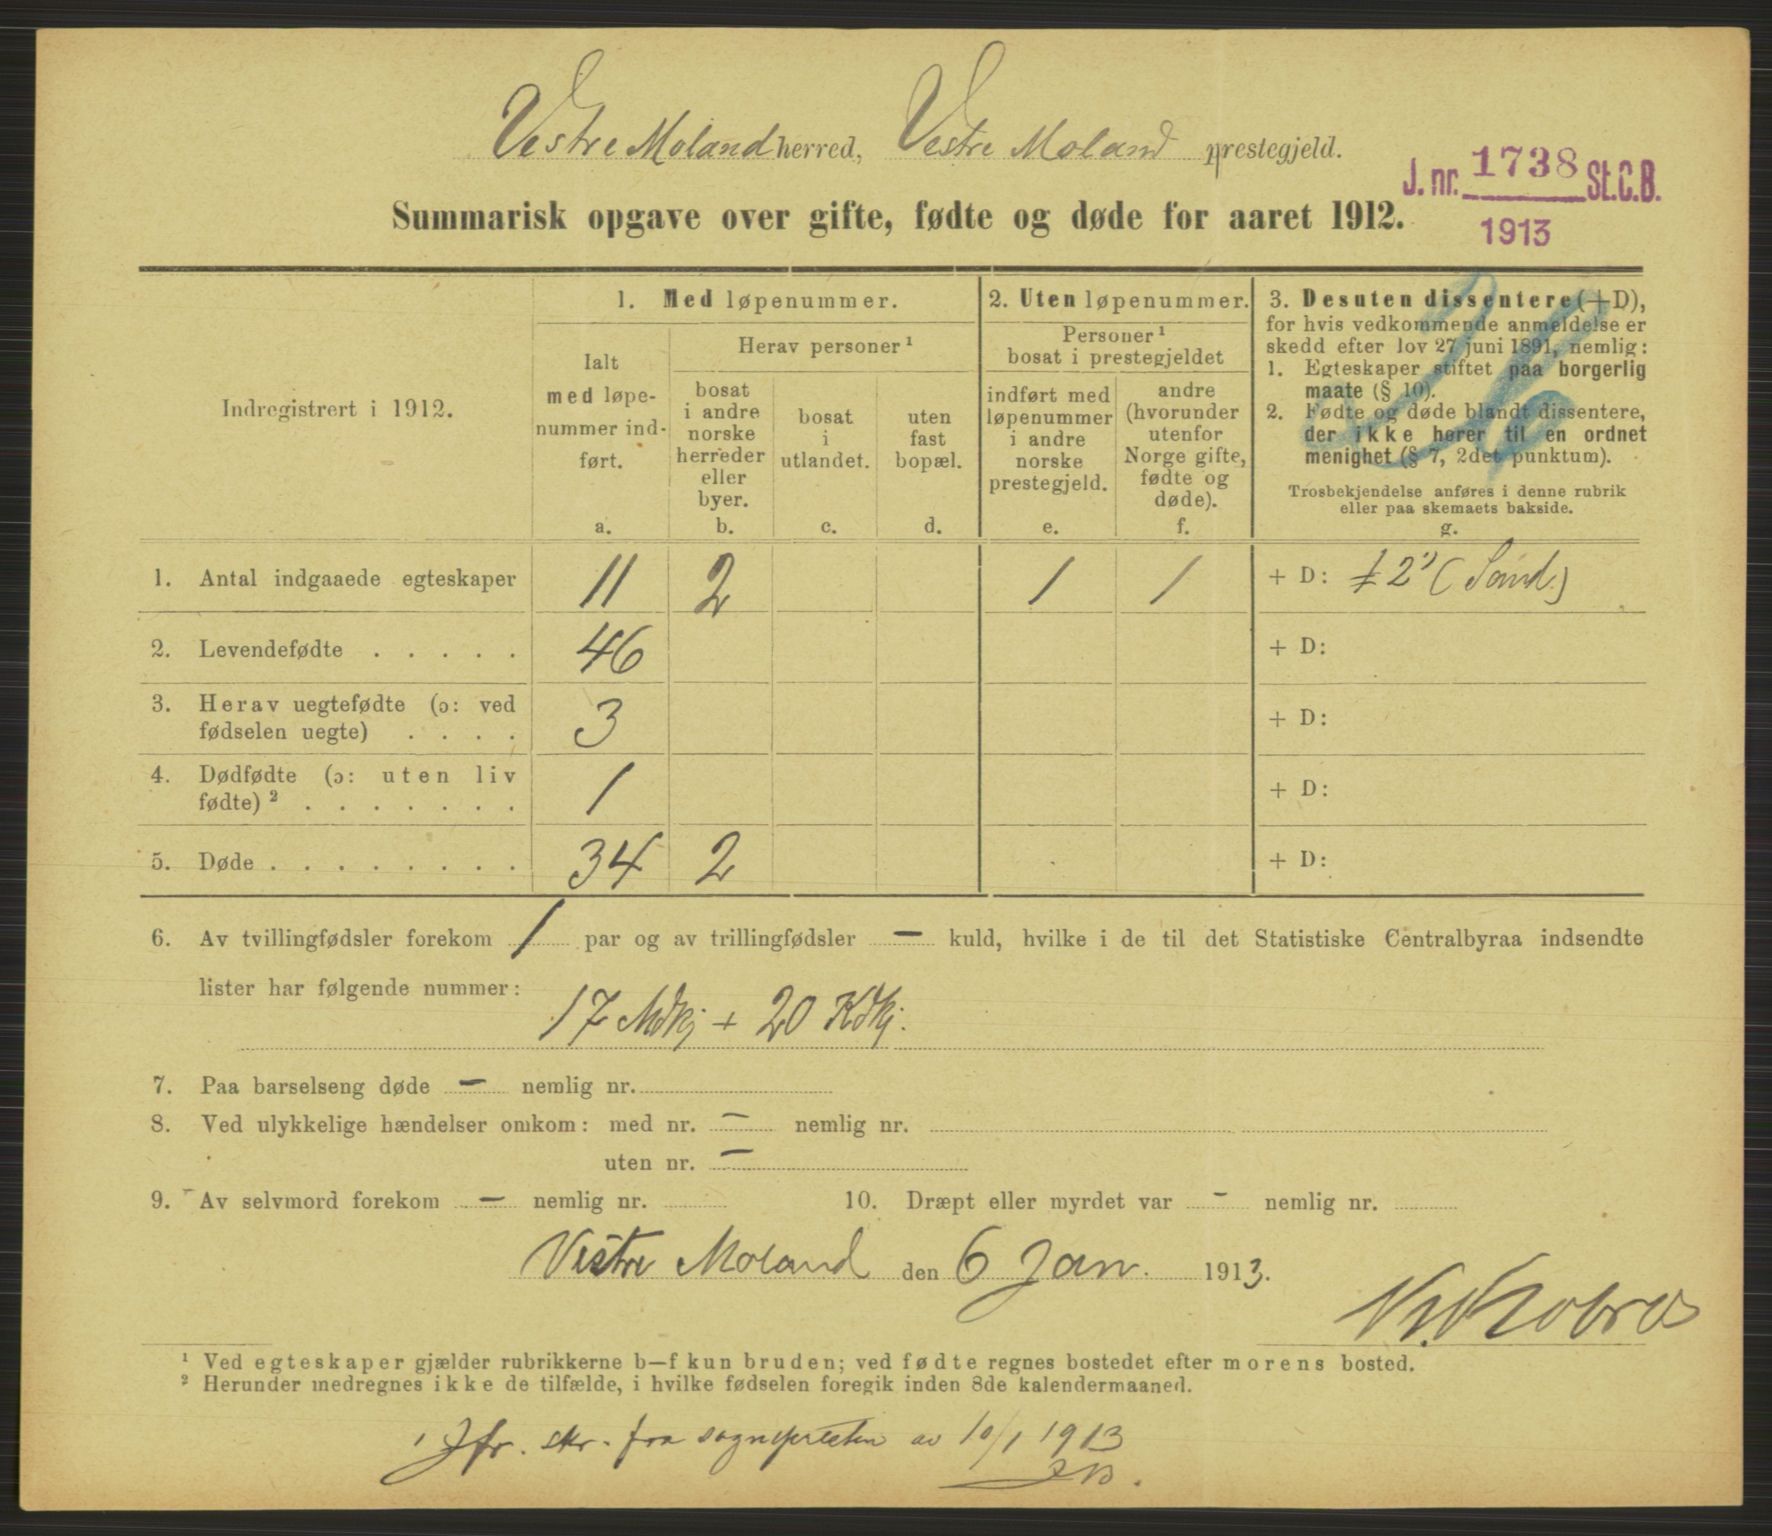 Vestre Moland herred, Vestre Moland prestegjeld.
J. nr. 1738 St.C.B.
1913
Summarisk opgave over gifte, fødte og døde for aaret 1912.
Indregistrert i 1912.
1. Med løpenummer.
Ialt
med løpe-
nummer ind-
ført.
a.
Herav personer ¹
bosat
i andre
norske
herreder
eller
byer.
b.
bosat
i
utlandet.
c.
uten
fast
bopæl.
d.
2. Uten løpenummer.
Personer ¹
bosat i prestegjeldet
indført med
løpenummer
i andre
norske
prestegjeld.
e.
andre
(hvorunder
utenfor
Norge gifte,
fødte og
døde).
f.
3. Desuten dissentere (+D),
for hvis vedkommende anmeldelse er
skedd efter lov 27 juni 1891, nemlig:
1. Egteskaper stiftet paa borgerlig
maate (§ 10).
2. Fødte og døde blandt dissentere,
der ikke hører til en ordnet
menighet (§ 7, 2det punktum).
Trosbekjendelse anføres i denne rubrik
eller paa skemaets bakside.
g.
26
1. Antal indgaaede egteskaper 11 2 1 1 + D: 2 ¹)
2. Levendefødte . . . . . 46 + D:
3. Herav uegtefødte (ɔ: ved
fødselen uegte) . . . . 3 + D:
4. Dødfødte (ɔ: uten liv
fødte) ² . . . . . . . 1 + D:
5. Døde . . . . . . . . 34 2 + D:
6. Av tvillingfødsler forekom 1 par og av trillingfødsler – kuld, hvilke i de til det Statistiske Centralbyraa indsendte
lister har følgende nummer:
17 Mdkj + 20 Kdkj.
7. Paa barselseng døde – nemlig nr.
8. Ved ulykkelige hændelser omkom: med nr. – nemlig nr.
uten nr. –
9. Av selvmord forekom – nemlig nr. 10. Dræpt eller myrdet var – nemlig nr.
Vestre Moland den 6 Jan. 1913.
¹ Ved egteskaper gjælder rubrikkerne b—f kun bruden; ved fødte regnes bostedet efter morens bosted.
² Herunder medregnes ikke de tilfælde, i hvilke fødselen foregik inden 8de kalendermaaned.
¹ Jfr. skr. fra sognepresten av 10/1 1913